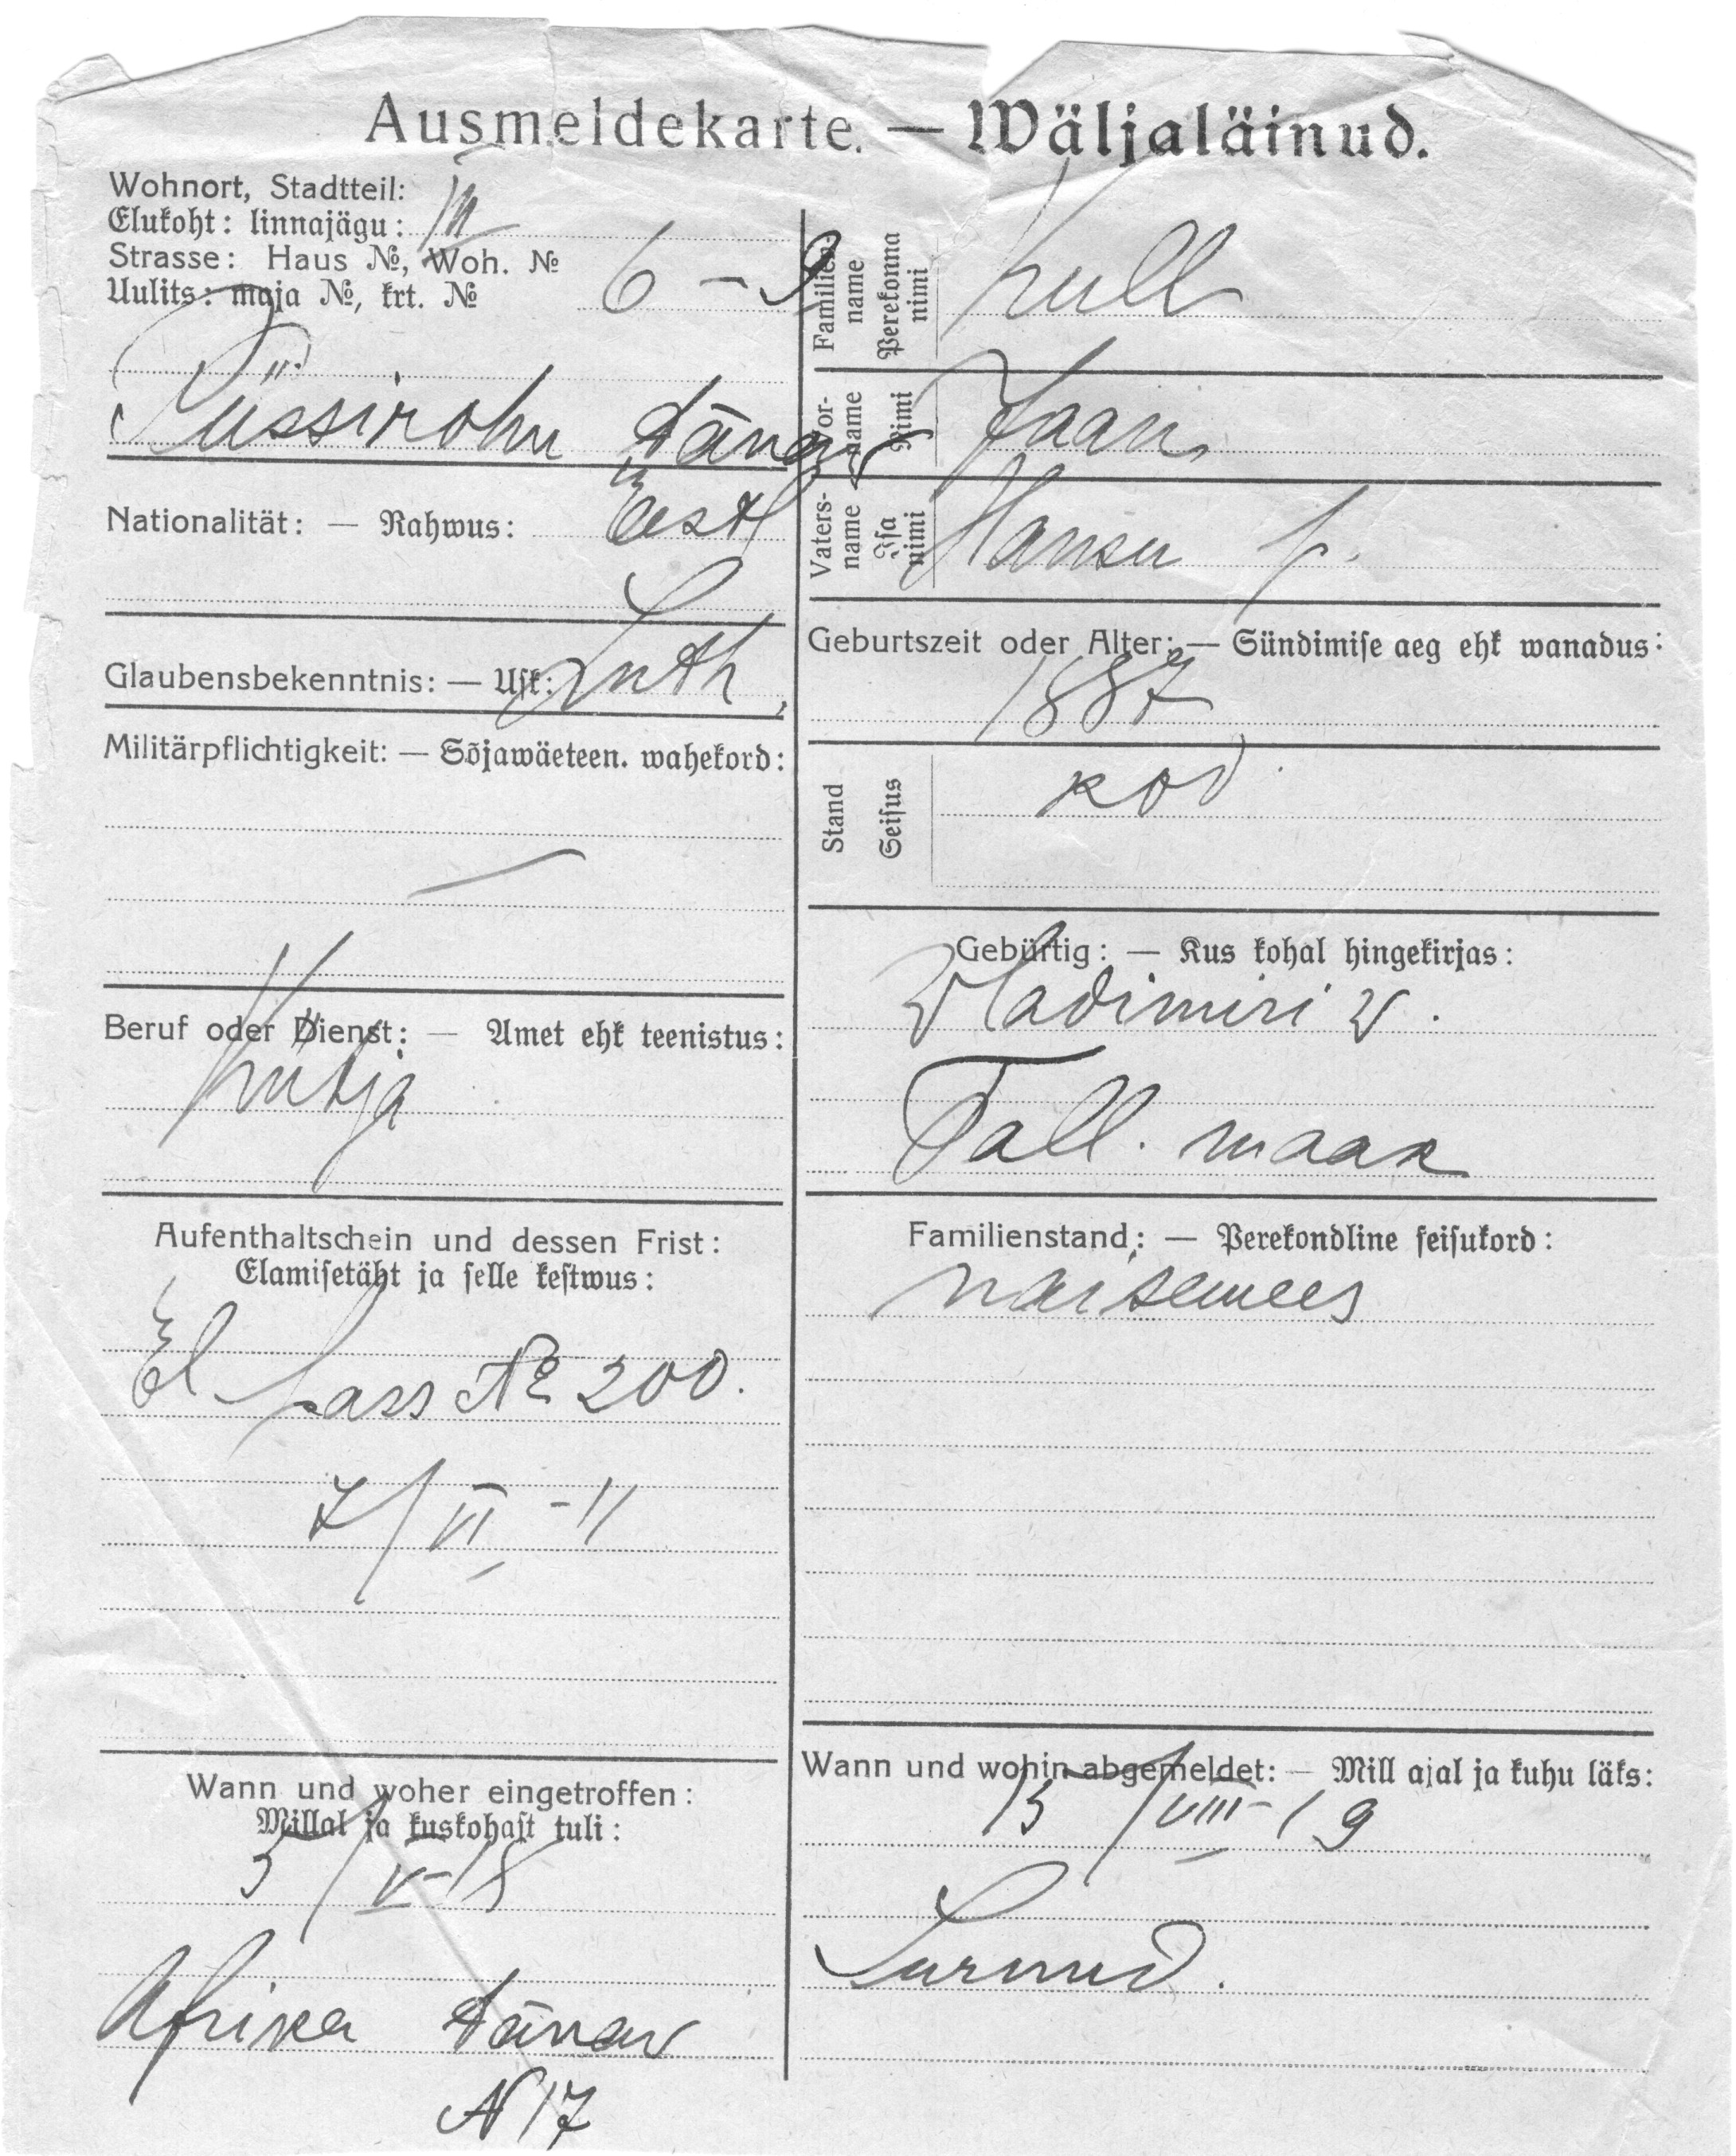 Ausmeldekarte. — Wäljaläinud.
Wohnort, Stadtteil:
Elukoht: linnajägu: III
Strasse: Haus №, Woh. №
Uulits: maja №, krt. № 6 – 9
Püssirohu tänav
Nationalität: — Rahwus: Eest
Glaubensbekenntnis: — Usk: Luth.
Militärpflichtigkeit: — Sõjawäeteen. wahekord:
—
Beruf oder Dienst: — Amet ehk teenistus:
Kütja
Aufenthaltschein und dessen Frist:
Elamisetäht ja selle kestwus:
El pass № 200.
7/VI – 11
Wann und woher eingetroffen:
Millal ja kuskohast tuli:
5/V – 18
Afrika tänav
N 17
Familien-name Perekonna nimi Kull
Vor-name Nimi Jaan
Vaters-name Isa nimi Hansu p.
Geburtszeit oder Alter: — Sündimise aeg ehk wanadus:
1887
Stand Seisus kod.
Gebürtig: — Kus kohal hingekirjas:
Wladimiri w.
Tall. maak
Familienstand: — Perekondline seisukord:
naisemees
Wann und wohin abgemeldet: — Mill ajal ja kuhu läks:
15/VIII – 19
Surnud.